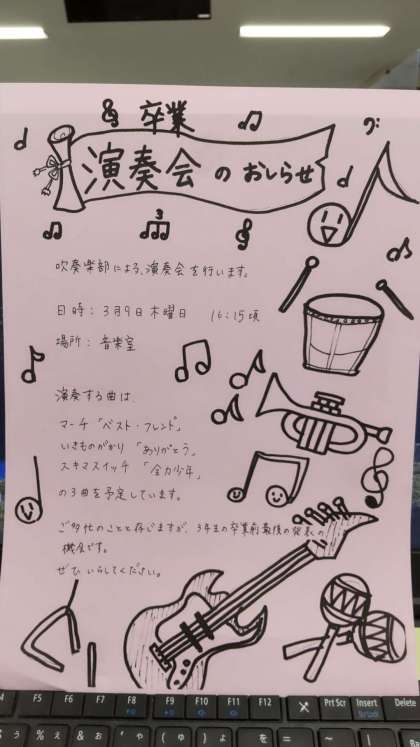 卒業
演奏会のおしらせ
3
吹奏楽部による、演奏会を行います。
日時：3月9日木曜日 16:15頃
場所：音楽室
演奏する曲は、
マーチ「ベスト・フレンド」
いきものがかり「ありがとう」
スキマスイッチ「全力少年」
の3曲を予定しています。
ご多忙のことと存じますが、3年生の卒業前最後の発表の
機会です。
ぜひいらしてください。
F5 F6 F7 F8 F9 F10 F11 F12 Prt Scr Insert Delete